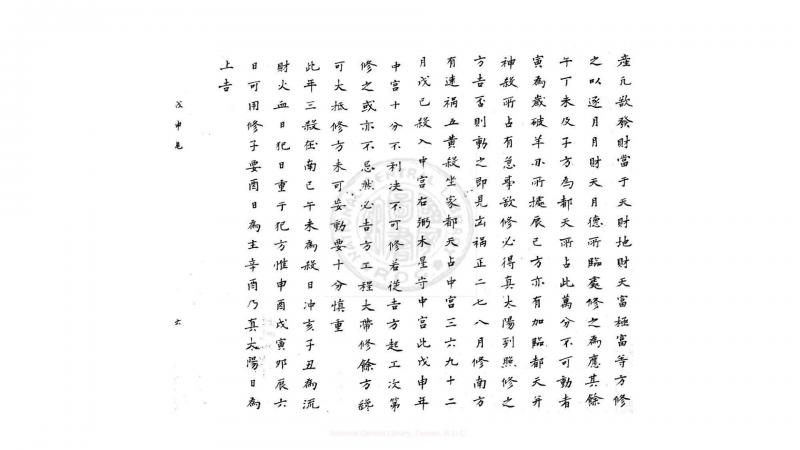 產凡欲發財當于天財地財天富極富等方修
之以逐月月財天月德所臨處修之為應其餘
午丁未及子方為都天所占此萬分不可動者
寅為歲破羊刃所據辰巳方亦有加臨都天并
神殺所占有急事欲修必得真太陽到照修之
方吉否則動之即見凶禍正二七八月修南方
有速禍五黃殺坐家都天占中宮三六九十二
月戊己殺入中宮右弼木星守中宮此戊申年
中宮十分不利決不可修若從吉方起工次第
修之或亦不忌然必吉方工程大帶修餘方纔
可大抵修方未可妄動要十分慎重
此年三殺在南巳午未為殺日冲亥子丑為流
財火血日犯日重于犯方惟申酉戌寅卯辰六
日可用修子要酉日為主辛酉乃真太陽日為
上吉
戊申
六